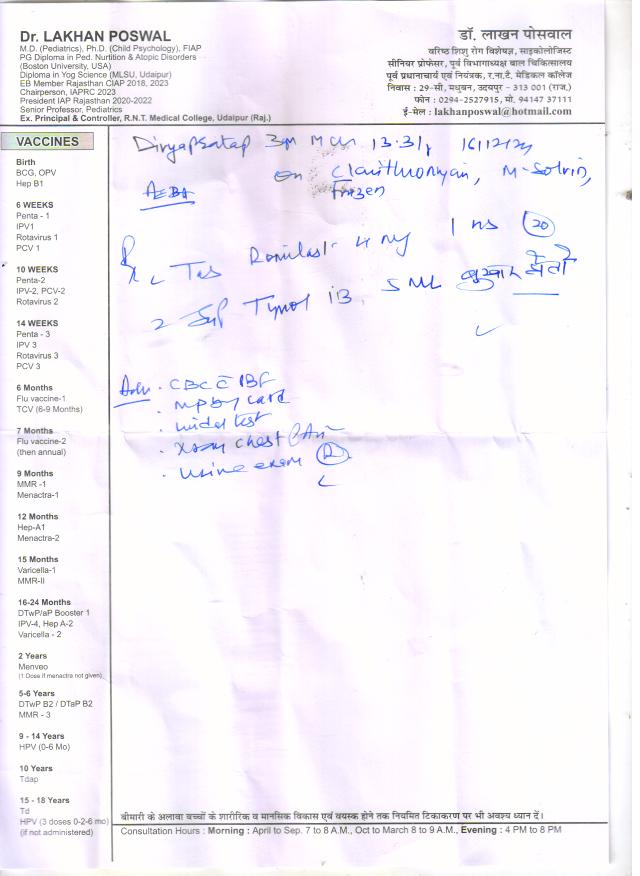 Dr. LAKHAN POSWAL
M.D. (Pediatrics), Ph.D. (Child Psychology), FIAP
PG Diploma in Ped. Nurtition & Atopic Disorders
(Boston University, USA)
Diploma in Yog Science (MLSU, Udaipur)
EB Member Rajasthan CIAP 2018, 2023
Chairperson, IAPRC 2023
President IAP Rajasthan 2020-2022
Senior Professor, Pediatrics
Ex. Principal & Controller, R.N.T. Medical College, Udaipur (Raj.)
डॉ. लाखन पोसवाल
वरिष्ठ शिशु रोग विशेषज्ञ, साइकोलोजिस्ट
सीनियर प्रोफेसर, पूर्व विभागाध्यक्ष बाल चिकित्सालय
पूर्व प्रधानाचार्य एवं नियंत्रक, र.ना.टै. मेडिकल कॉलेज
निवास : 29-सी, मधुबन, उदयपुर - 313 001 (राज.)
फोन : 0294-2527915, मो. 94147 37111
ई-मेल : lakhanposwal@hotmail.com
VACCINES
Birth
BCG, OPV
Hep B1
6 WEEKS
Penta - 1
IPV1
Rotavirus 1
PCV 1
10 WEEKS
Penta-2
IPV-2, PCV-2
Rotavirus 2
14 WEEKS
Penta - 3
IPV 3
Rotavirus 3
PCV 3
6 Months
Flu vaccine-1
TCV (6-9 Months)
7 Months
Flu vaccine-2
(then annual)
9 Months
MMR -1
Menactra-1
12 Months
Hep-A1
Menactra-2
15 Months
Varicella-1
MMR-II
16-24 Months
DTwP/aP Booster 1
IPV-4, Hep A-2
Varicella - 2
2 Years
Menveo
(1 Dose if menactra not given)
5-6 Years
DTwP B2 / DTaP B2
MMR - 3
9 - 14 Years
HPV (0-6 Mo)
10 Years
Tdap
15 - 18 Years
Td
HPV (3 doses 0-2-6 mo)
(if not administered)
16/12/24
on
Rx
Tab 4 mg 1
20
2 Syp 5 ML बुखार
Adv. CBC
card
test
chest
urine exam
बीमारी के अलावा बच्चों के शारीरिक व मानसिक विकास एवं वयस्क होने तक नियमित टिकाकरण पर भी अवश्य ध्यान दें।
Consultation Hours : Morning : April to Sep. 7 to 8 A.M., Oct to March 8 to 9 A.M., Evening : 4 PM to 8 PM